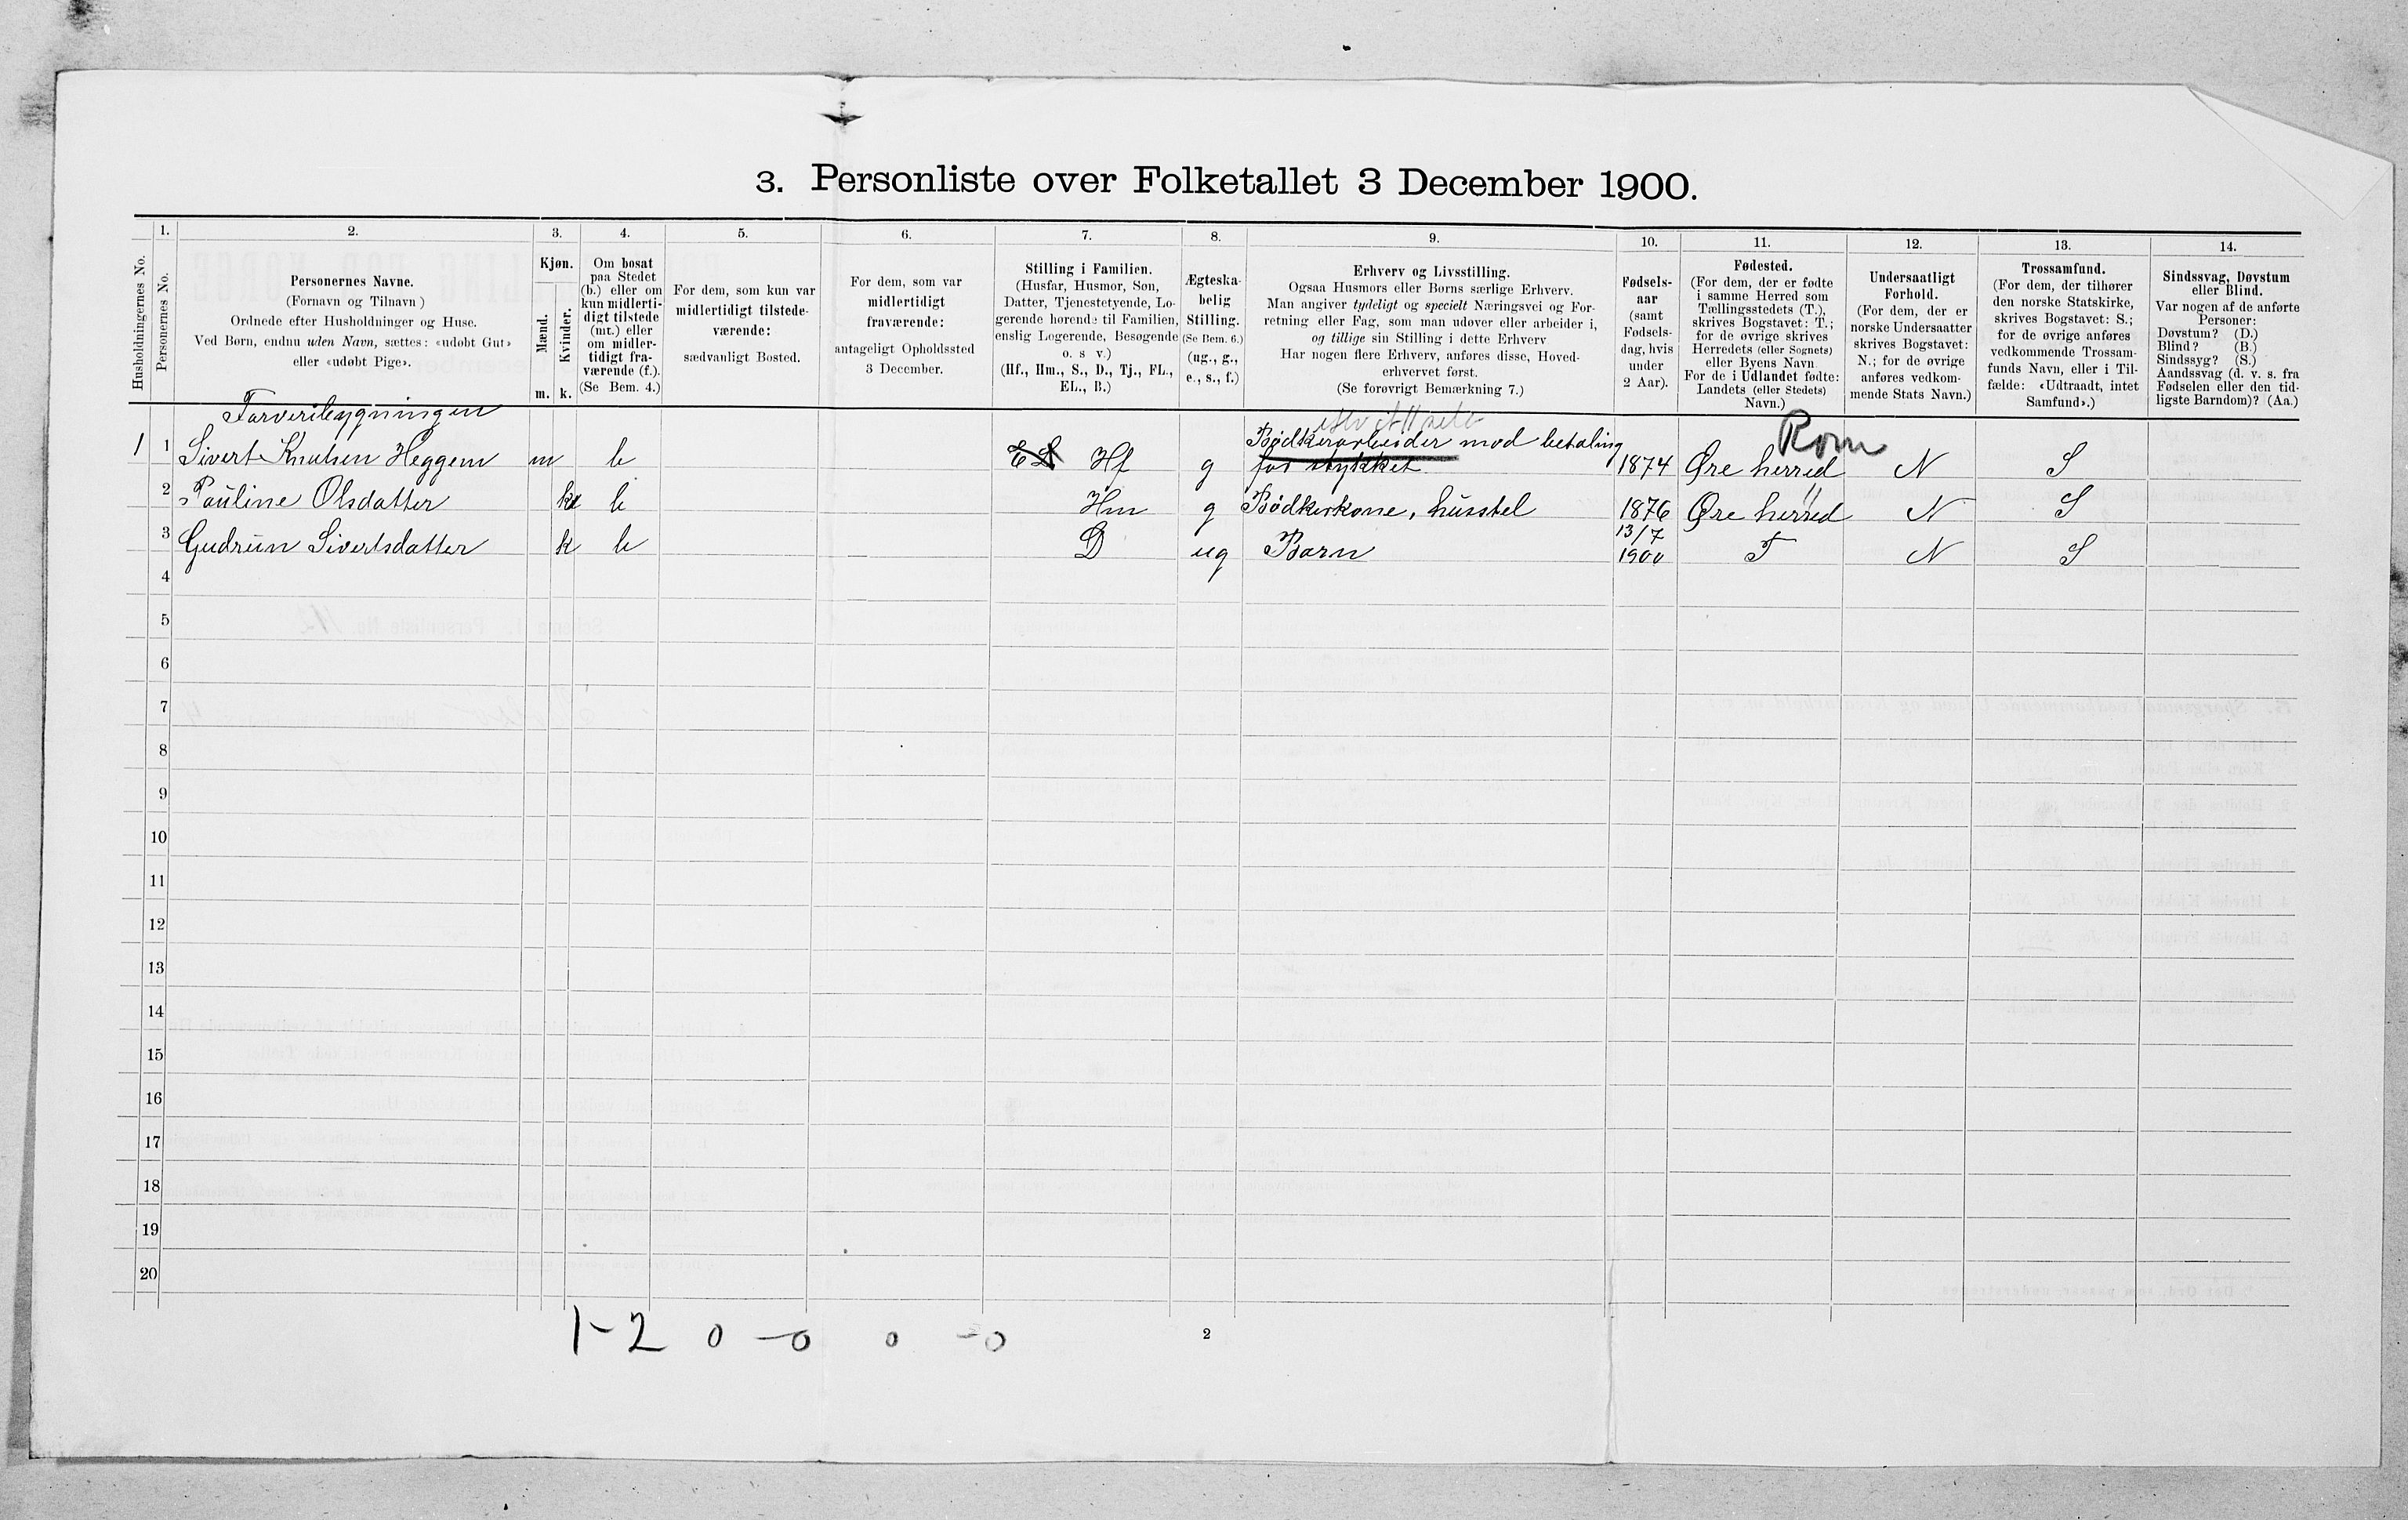 3. Personliste over Folketallet 3 December 1900.
1. 2. 3. 4. 5. 6. 7. 8. 9. 10. 11. 12. 13. 14.
Husholdningernes No.
Personernes No.
Personernes Navne.
(Fornavn og Tilnavn)
Ordnede efter Husholdninger og Huse.
Ved Børn, endnu uden Navn, sættes: «udøbt Gut»
eller «udøbt Pige».
Kjøn.
Mænd.
Kvinder.
m. k.
Om bosat
paa Stedet
(b.) eller om
kun midlerti-
digt tilstede
(mt.) eller
om midler-
tidigt fra-
værende (f.).
(Se Bem. 4.)
For dem, som kun var
midlertidigt tilstede-
værende:
sædvanligt Bosted.
For dem, som var
midlertidigt
fraværende:
antageligt Opholdssted
3 December.
Stilling i Familien.
(Husfar, Husmor, Søn,
Datter, Tjenestetyende, Lo-
gerende hørende til Familien,
enslig Logerende, Besøgende
o. s v.)
(Hf., Hm., S., D., Tj., FL.,
EL., B.)
Ægteska-
belig
Stilling.
(Se Bem. 6.)
(ug., g.,
e., s., f.)
Erhverv og Livsstilling.
Ogsaa Husmors eller Børns særlige Erhverv.
Man angiver tydeligt og specielt Næringsvei og For-
retning eller Fag, som man udøver eller arbeider i,
og tillige sin Stilling i dette Erhverv
Har nogen flere Erhverv, anføres disse, Hoved-
erhvervet først.
(Se forøvrigt Bemærkning 7.)
Fødsels-
aar
(samt
Fødsels-
dag, hvis
under
2 Aar).
Fødested.
(For dem, der er fødte
i samme Herred som
Tællingsstedets (T.),
skrives Bogstavet: T.;
for de øvrige skrives
Herredets (eller Sognets)
eller Byens Navn
For de i Udlandet fødte:
Landets (eller Stedets)
Navn.)
Undersaatligt
Forhold.
(For dem, der er
norske Undersaatter
skrives Bogstavet:
N.; for de øvrige
anføres vedkom-
mende Stats Navn.)
Trossamfund.
(For dem, der tilhører
den norske Statskirke,
skrives Bogstavet: S.;
for de øvrige anføres
vedkommende Trossam-
funds Navn, eller i Til-
fælde: «Udtraadt, intet
Samfund».)
Sindssvag, Døvstum
eller Blind.
Var nogen af de anførte
Personer:
Døvstum? (D.)
Blind? (B.)
Sindssyg? (S.)
Aandssvag (d. v. s. fra
Fødselen eller den tid-
ligste Barndom)? (Aa.)
Farveribygningen
Rom
1 1 Sivert Knutsen Heggem m b EL Hf g Bødkerarbeider mod betaling for stykket 1874 Øre herred N S
2 Pauline Olsdatter k b Hm g Bødkerkone, husstel 1876 Øre herred " N S
3 Gudrun Sivertsdatter k b D ug Barn 13/7 1900 T N S
4
5
6
7
8
9
10
11
12
13
14
15
16
17
18
19
20
1-2 0 - 0 0 - 0
2